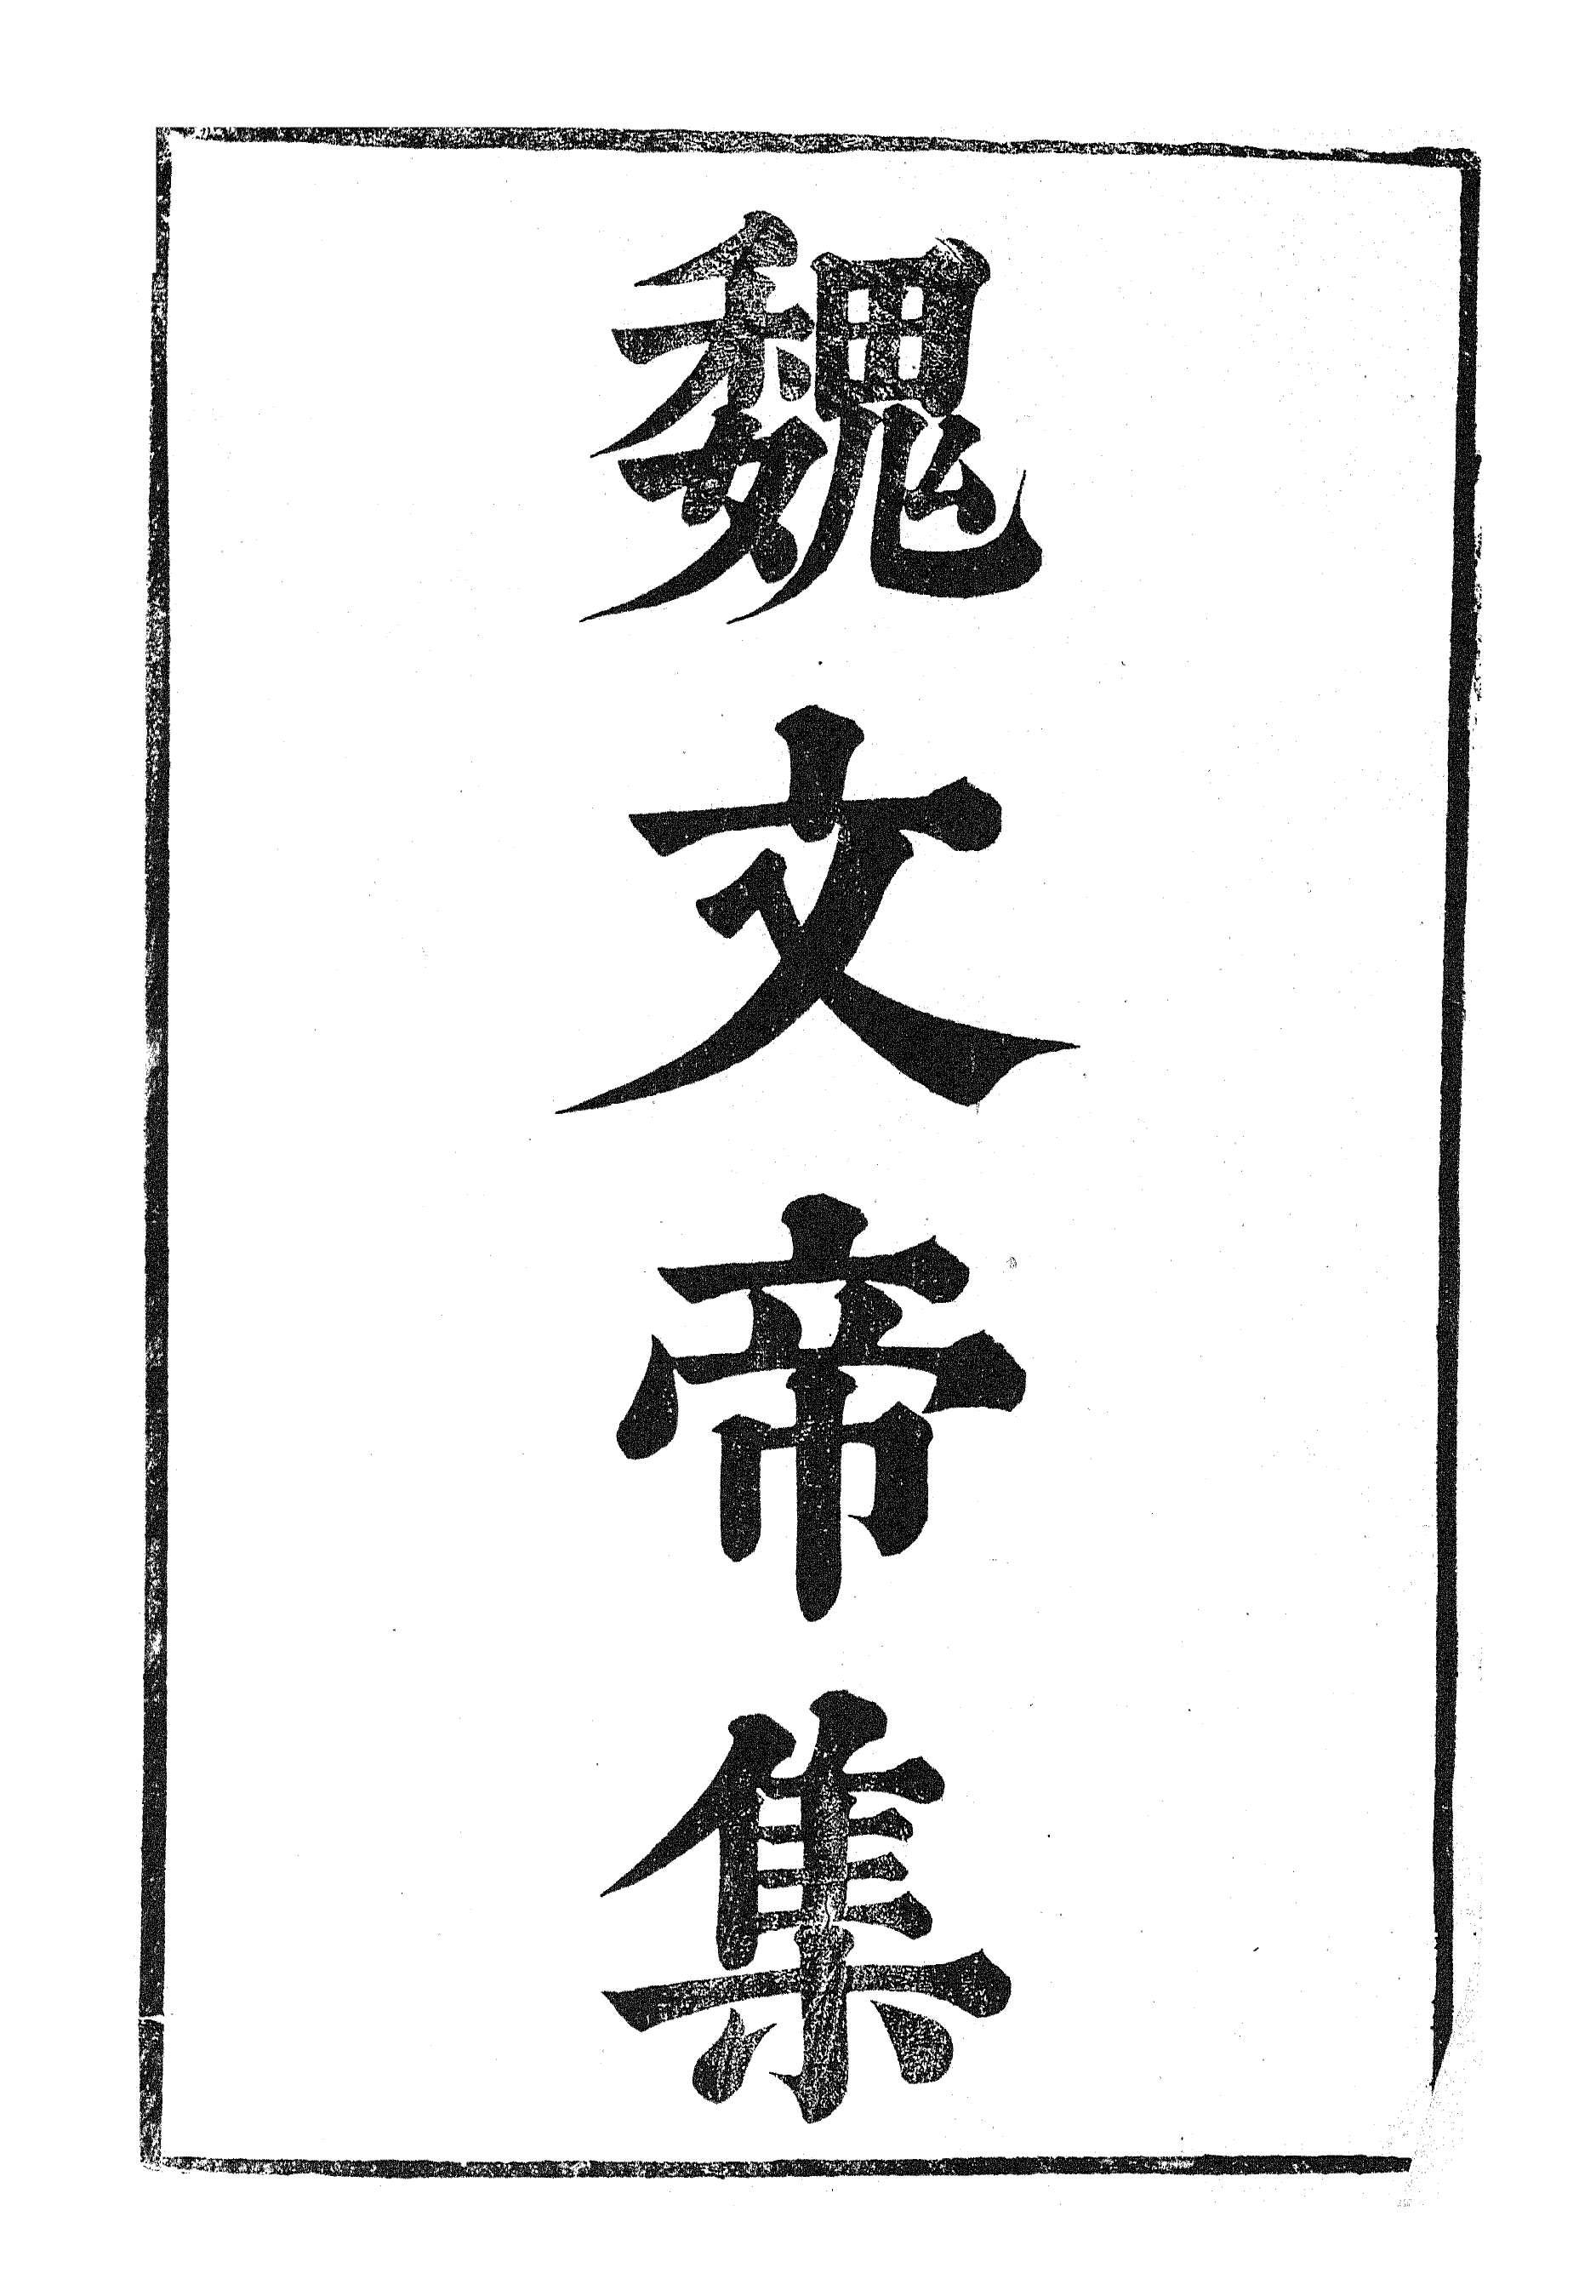 魏文帝集